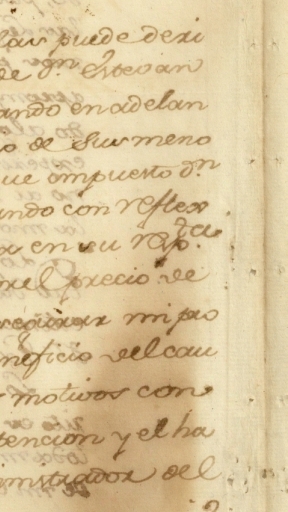 las puede deri
de Dn. Estevan
ando en adelan
o de sus meno
ue ympuesto Dn
ando con reflex
x en su resp.ta
el precio de
mi pro
neficio del cau
motivos con
tencion y el ha
ministrador del